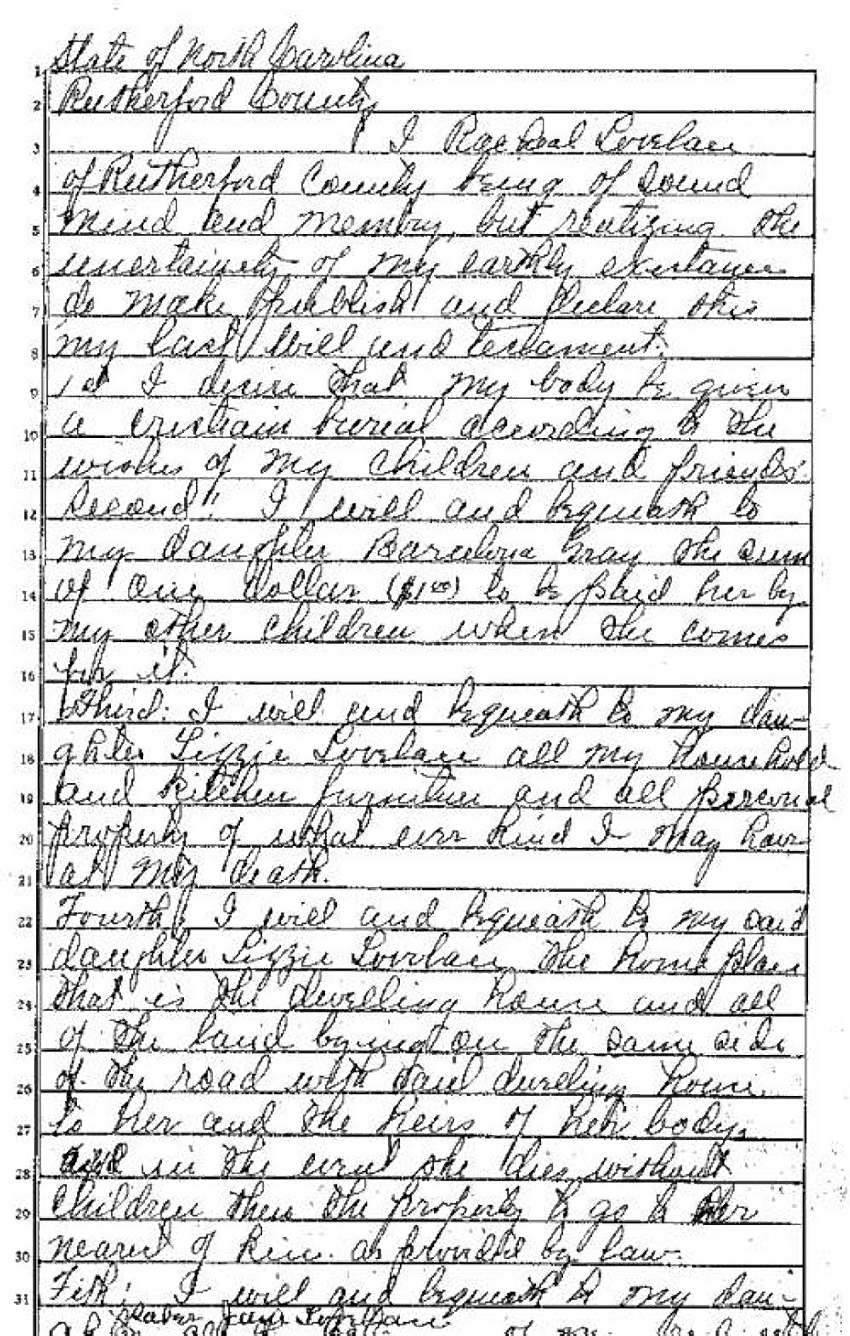 State of North Carolina
1
Rutherford County
2
I Racheal Lovelace
3
of Rutherford County being of sound
4
mind and memory, but realizing the
5
uncertainety of my earthly existance
6
do make publish and declare this
7
my last will and testament.
8
1st I desire that my body be given
9
a cristian burial according to the
10
wishes of my children and friends.
11
Second: I will and bequeath to
12
my daughter Barcelona Gray the sum
13
of one dollar ($1.00) to be paid her by
14
my other children when she comes
15
for it.
16
Third: I will and bequeath to my dau-
17
ghter Lizzie Lovelace all my household
18
and kitchen furniture and all personal
19
property of what ever kind I may have
20
at my death.
21
Fourth: I will and bequeath to my said
22
daughter Lizzie Lovelace the home place
23
that is the dwelling house and all
24
of the land lying on the same side
25
of the road with said dwelling house
26
to her and the heirs of her body,
27
and in the event she dies without
28
children then the property to go to her
29
nearest of kin as provided by law.
30
Fith: I will and bequeath to my dau-
31
Jane Lovelace
of my